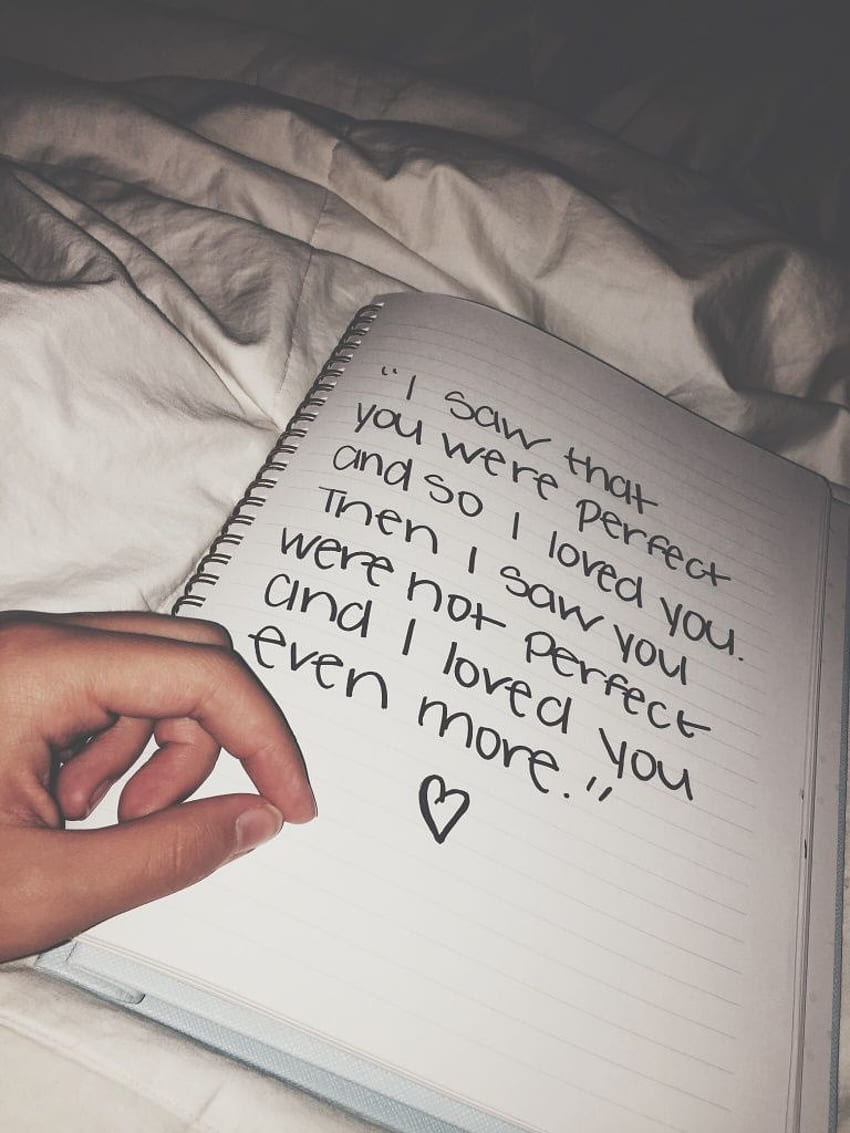 "I saw that
you were perfect
and so I loved you.
Then I saw you
were not perfect
and I loved you
even more."